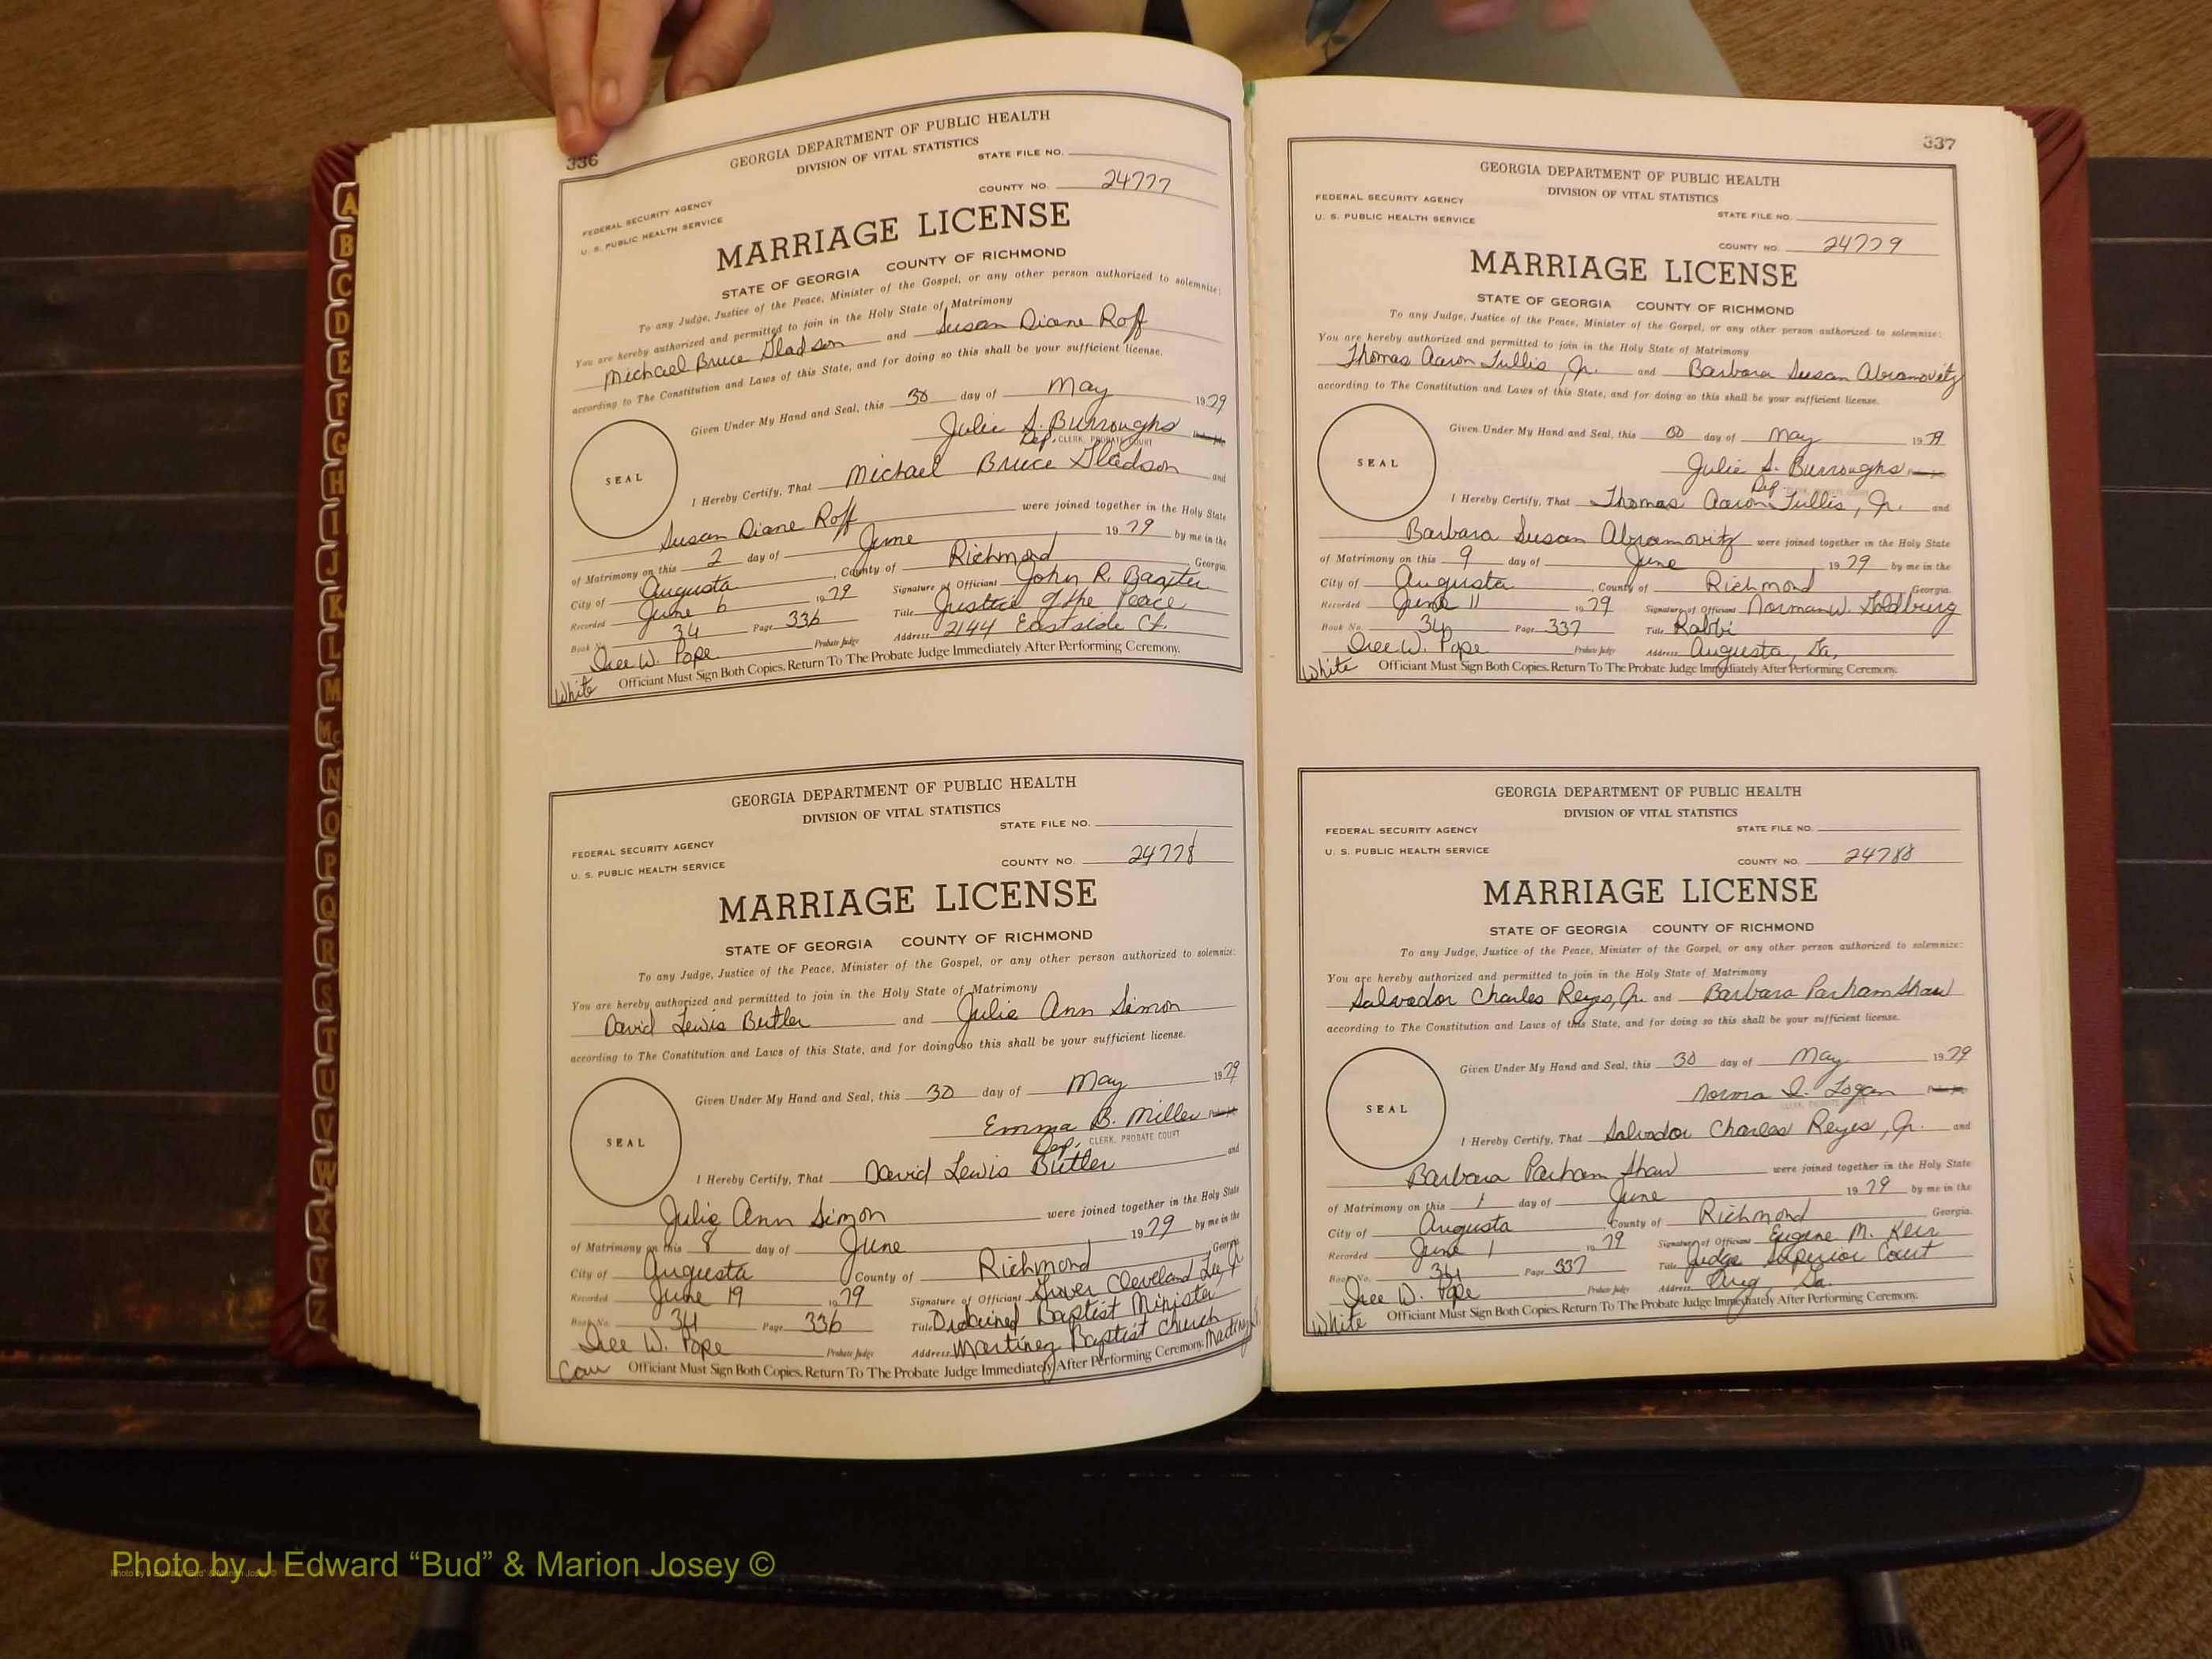 336
GEORGIA DEPARTMENT OF PUBLIC HEALTH
DIVISION OF VITAL STATISTICS
STATE FILE NO.
COUNTY NO. 24777
FEDERAL SECURITY AGENCY
U. S. PUBLIC HEALTH SERVICE
MARRIAGE LICENSE
STATE OF GEORGIA COUNTY OF RICHMOND
To any Judge, Justice of the Peace, Minister of the Gospel, or any other person authorized to solemnize:
You are hereby authorized and permitted to join in the Holy State of Matrimony
Michael Bruce Gladson and Susan Diane Roff
according to The Constitution and Laws of this State, and for doing so this shall be your sufficient license.
Given Under My Hand and Seal, this 30 day of May 1979
Julie S. Burroughs
Dep. CLERK, PROBATE COURT
SEAL
I Hereby Certify, That Michael Bruce Gladson and
Susan Diane Roff were joined together in the Holy State
of Matrimony on this 2 day of June 1979 by me in the
City of Augusta, County of Richmond Georgia.
Recorded June 6 1979 Signature of Officiant John R. Baxter
Book No. 34 Page 336 Title Justice of the Peace
Dree W. Pope Probate Judge Address 2144 Eastside Ct.
White Officiant Must Sign Both Copies. Return To The Probate Judge Immediately After Performing Ceremony.
GEORGIA DEPARTMENT OF PUBLIC HEALTH
DIVISION OF VITAL STATISTICS
STATE FILE NO.
FEDERAL SECURITY AGENCY
U. S. PUBLIC HEALTH SERVICE
COUNTY NO. 24778
MARRIAGE LICENSE
STATE OF GEORGIA COUNTY OF RICHMOND
To any Judge, Justice of the Peace, Minister of the Gospel, or any other person authorized to solemnize:
You are hereby authorized and permitted to join in the Holy State of Matrimony
David Lewis Butler and Julie Ann Simon
according to The Constitution and Laws of this State, and for doing so this shall be your sufficient license.
Given Under My Hand and Seal, this 30 day of May 1979
Emma B. Miller
Dep. CLERK, PROBATE COURT
SEAL
I Hereby Certify, That David Lewis Butler and
Julie Ann Simon were joined together in the Holy State
of Matrimony on this 8 day of June 1979 by me in the
City of Augusta County of Richmond Georgia.
Recorded June 19 1979 Signature of Officiant Grover Cleveland Lee, Jr
Book No. 34 Page 336 Title Ordained Baptist Minister
Dree W. Pope Probate Judge Address Martinez Baptist Church
Cau Officiant Must Sign Both Copies. Return To The Probate Judge Immediately After Performing Ceremony.
337
GEORGIA DEPARTMENT OF PUBLIC HEALTH
DIVISION OF VITAL STATISTICS
FEDERAL SECURITY AGENCY
U. S. PUBLIC HEALTH SERVICE
STATE FILE NO.
COUNTY NO. 24779
MARRIAGE LICENSE
STATE OF GEORGIA COUNTY OF RICHMOND
To any Judge, Justice of the Peace, Minister of the Gospel, or any other person authorized to solemnize:
You are hereby authorized and permitted to join in the Holy State of Matrimony
Thomas Aaron Tullis, Jr. and Barbara Susan Abramovitz
according to The Constitution and Laws of this State, and for doing so this shall be your sufficient license.
Given Under My Hand and Seal, this 30 day of May 1979
Julie S. Burroughs
Dep.
SEAL
I Hereby Certify, That Thomas Aaron Tullis, Jr. and
Barbara Susan Abramovitz were joined together in the Holy State
of Matrimony on this 9 day of June 1979 by me in the
City of Augusta, County of Richmond Georgia.
Recorded June 11 1979 Signature of Officiant Norman W. Goldburg
Book No. 34 Page 337 Title Rabbi
Dree W. Pope Probate Judge Address Augusta, Ga,
White Officiant Must Sign Both Copies. Return To The Probate Judge Immediately After Performing Ceremony.
GEORGIA DEPARTMENT OF PUBLIC HEALTH
DIVISION OF VITAL STATISTICS
FEDERAL SECURITY AGENCY
U. S. PUBLIC HEALTH SERVICE
STATE FILE NO.
COUNTY NO. 24780
MARRIAGE LICENSE
STATE OF GEORGIA COUNTY OF RICHMOND
To any Judge, Justice of the Peace, Minister of the Gospel, or any other person authorized to solemnize:
You are hereby authorized and permitted to join in the Holy State of Matrimony
Salvador Charles Reyes, Jr. and Barbara Parham Shaw
according to The Constitution and Laws of this State, and for doing so this shall be your sufficient license.
Given Under My Hand and Seal, this 30 day of May 1979
Norma I. Logan
CLERK, PROBATE COURT
SEAL
I Hereby Certify, That Salvador Charles Reyes, Jr. and
Barbara Parham Shaw were joined together in the Holy State
of Matrimony on this 1 day of June 1979 by me in the
City of Augusta County of Richmond Georgia.
Recorded June 1 1979 Signature of Officiant Eugene M. Kerr
Book No. 34 Page 337 Title Judge Superior Court
Dree W. Pope Probate Judge Address Aug, Ga.
White Officiant Must Sign Both Copies. Return To The Probate Judge Immediately After Performing Ceremony.
A
B
C
D
E
F
G
H
I
J
K
L
M
Mc
N
O
P
Q
R
S
T
U
V
W
X
Y
Z
Photo by J Edward “Bud” & Marion Josey ©